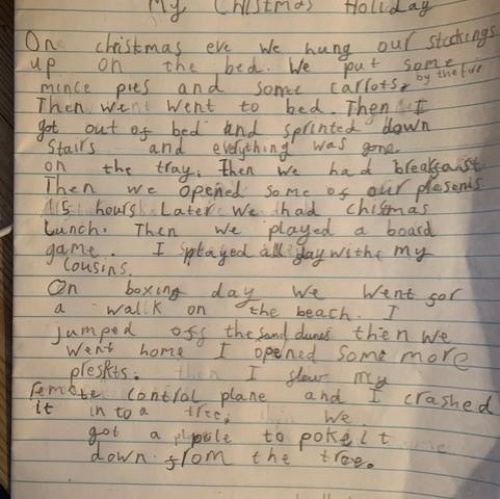 My Christmas Holiday
On christmas eve we hung our stockings
up on the bed. We put some
mince pies and some carrots, by the fire
Then went went to bed. Then I
got out of bed and sprinted down
stairs and everything was gone
on the tray. Then we had breakfast
Then we opened some of our presents
15 hours Later we had chistmas
Lunch. Then we played a board
game. I played all day withe my
cousins.
On boxing day we went for
a walk on the beach. I
jumped off the sand dunes then we
went home I opened some more
then I flew my
remote control plane and I crashed
it in to a tree, we
got a pole to poke it
down from the tree.